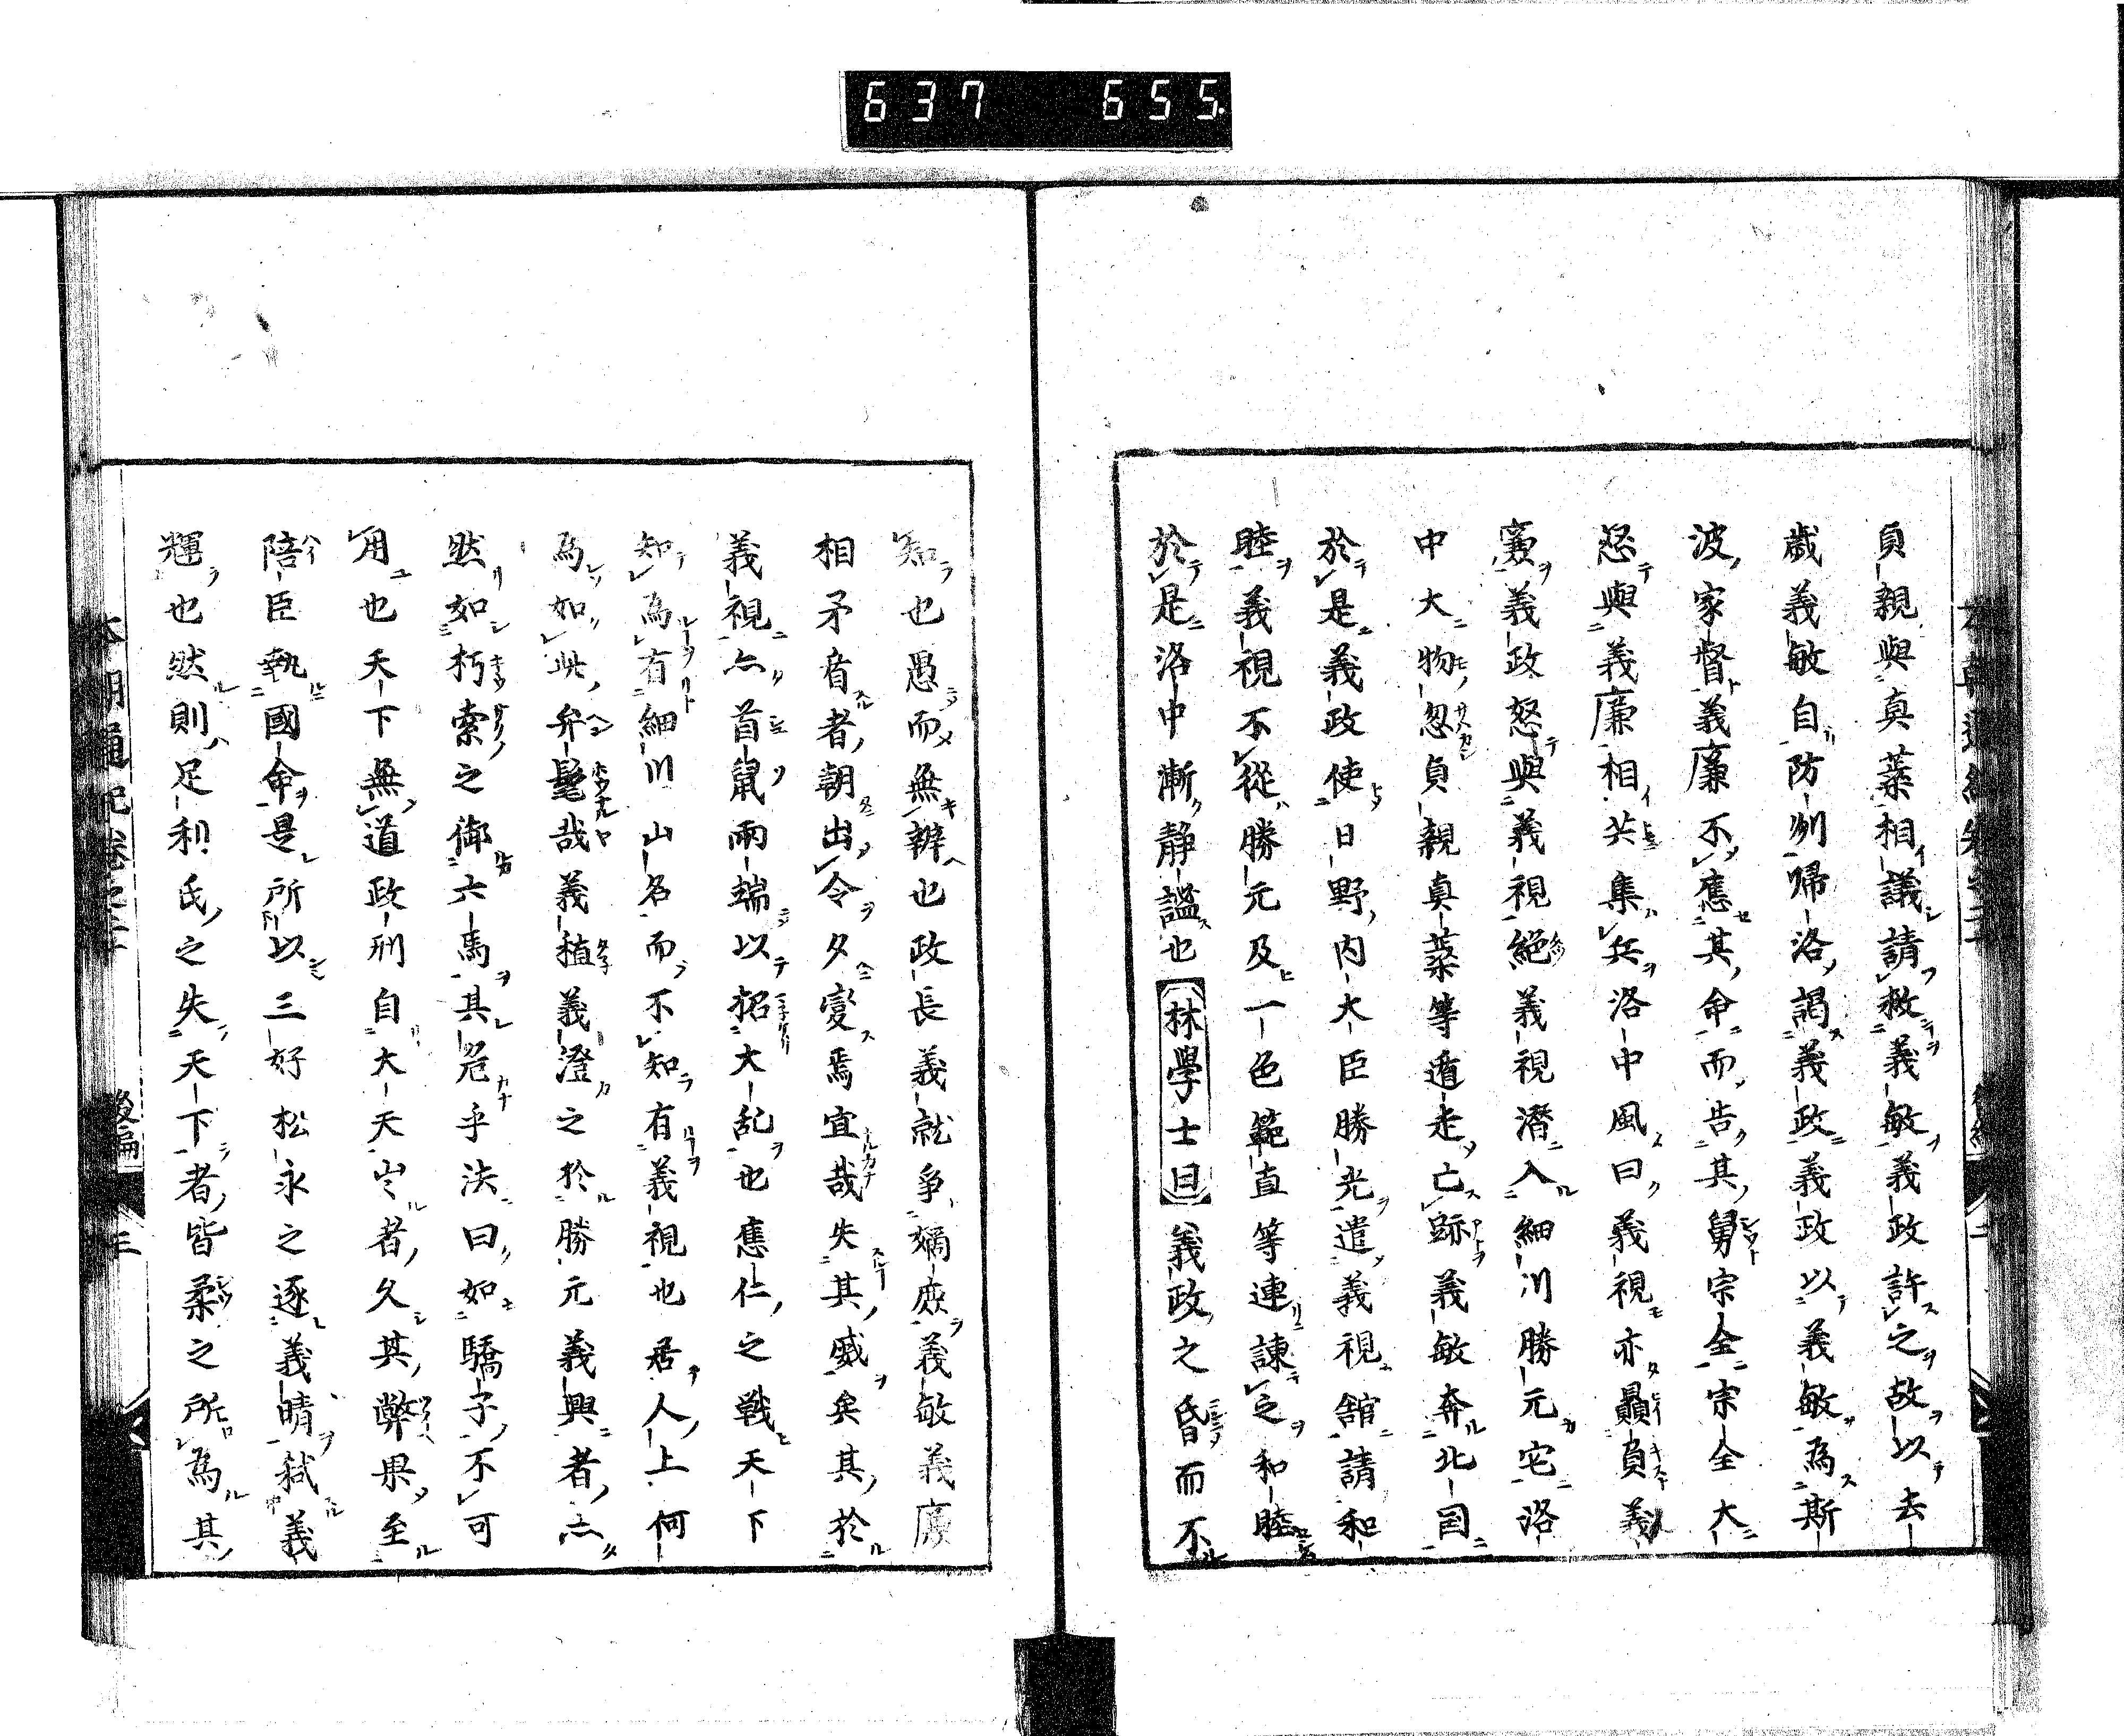 637 655.
貞親與真蘂相議請赦義敏義政許之故以去
歳義敏自防州歸洛謁義政義政以義敏為斯
波家督義廉不應其命而告其舅宗全宗全大
怒與義廉相共集兵洛中風曰義視亦贔負義
廉義政怒與義視絕義視潛入細川勝元宅洛
中大物忽貞親真蘂等遁走亡跡義敏奔北国
於是義政使日野內大臣勝光遣義視館請和
睦義視不從勝元及一色範直等連諫之和睦
於是洛中漸静謐也林學士曰義政之昏而不
知也愚而無辨也政長義就爭嫡庶義敏義廉
相矛盾者朝出令夕変焉宜哉失其威矣其於
義視亦首鼠兩端以招大乱也應仁之戦天下
知為有細川山名而不知有義視也居人上何
為如此弁髦哉義稙義澄之於勝元義興者亦
然如朽索之御六馬其危乎法曰如驕子不可
用也天下無道政刑自大夫出者久其弊果至
陪臣執國命是所以三好松永之逐義晴弑義
輝也然則足利氏之失天下者皆柔之所為其
本朝通紀卷之 後編 三